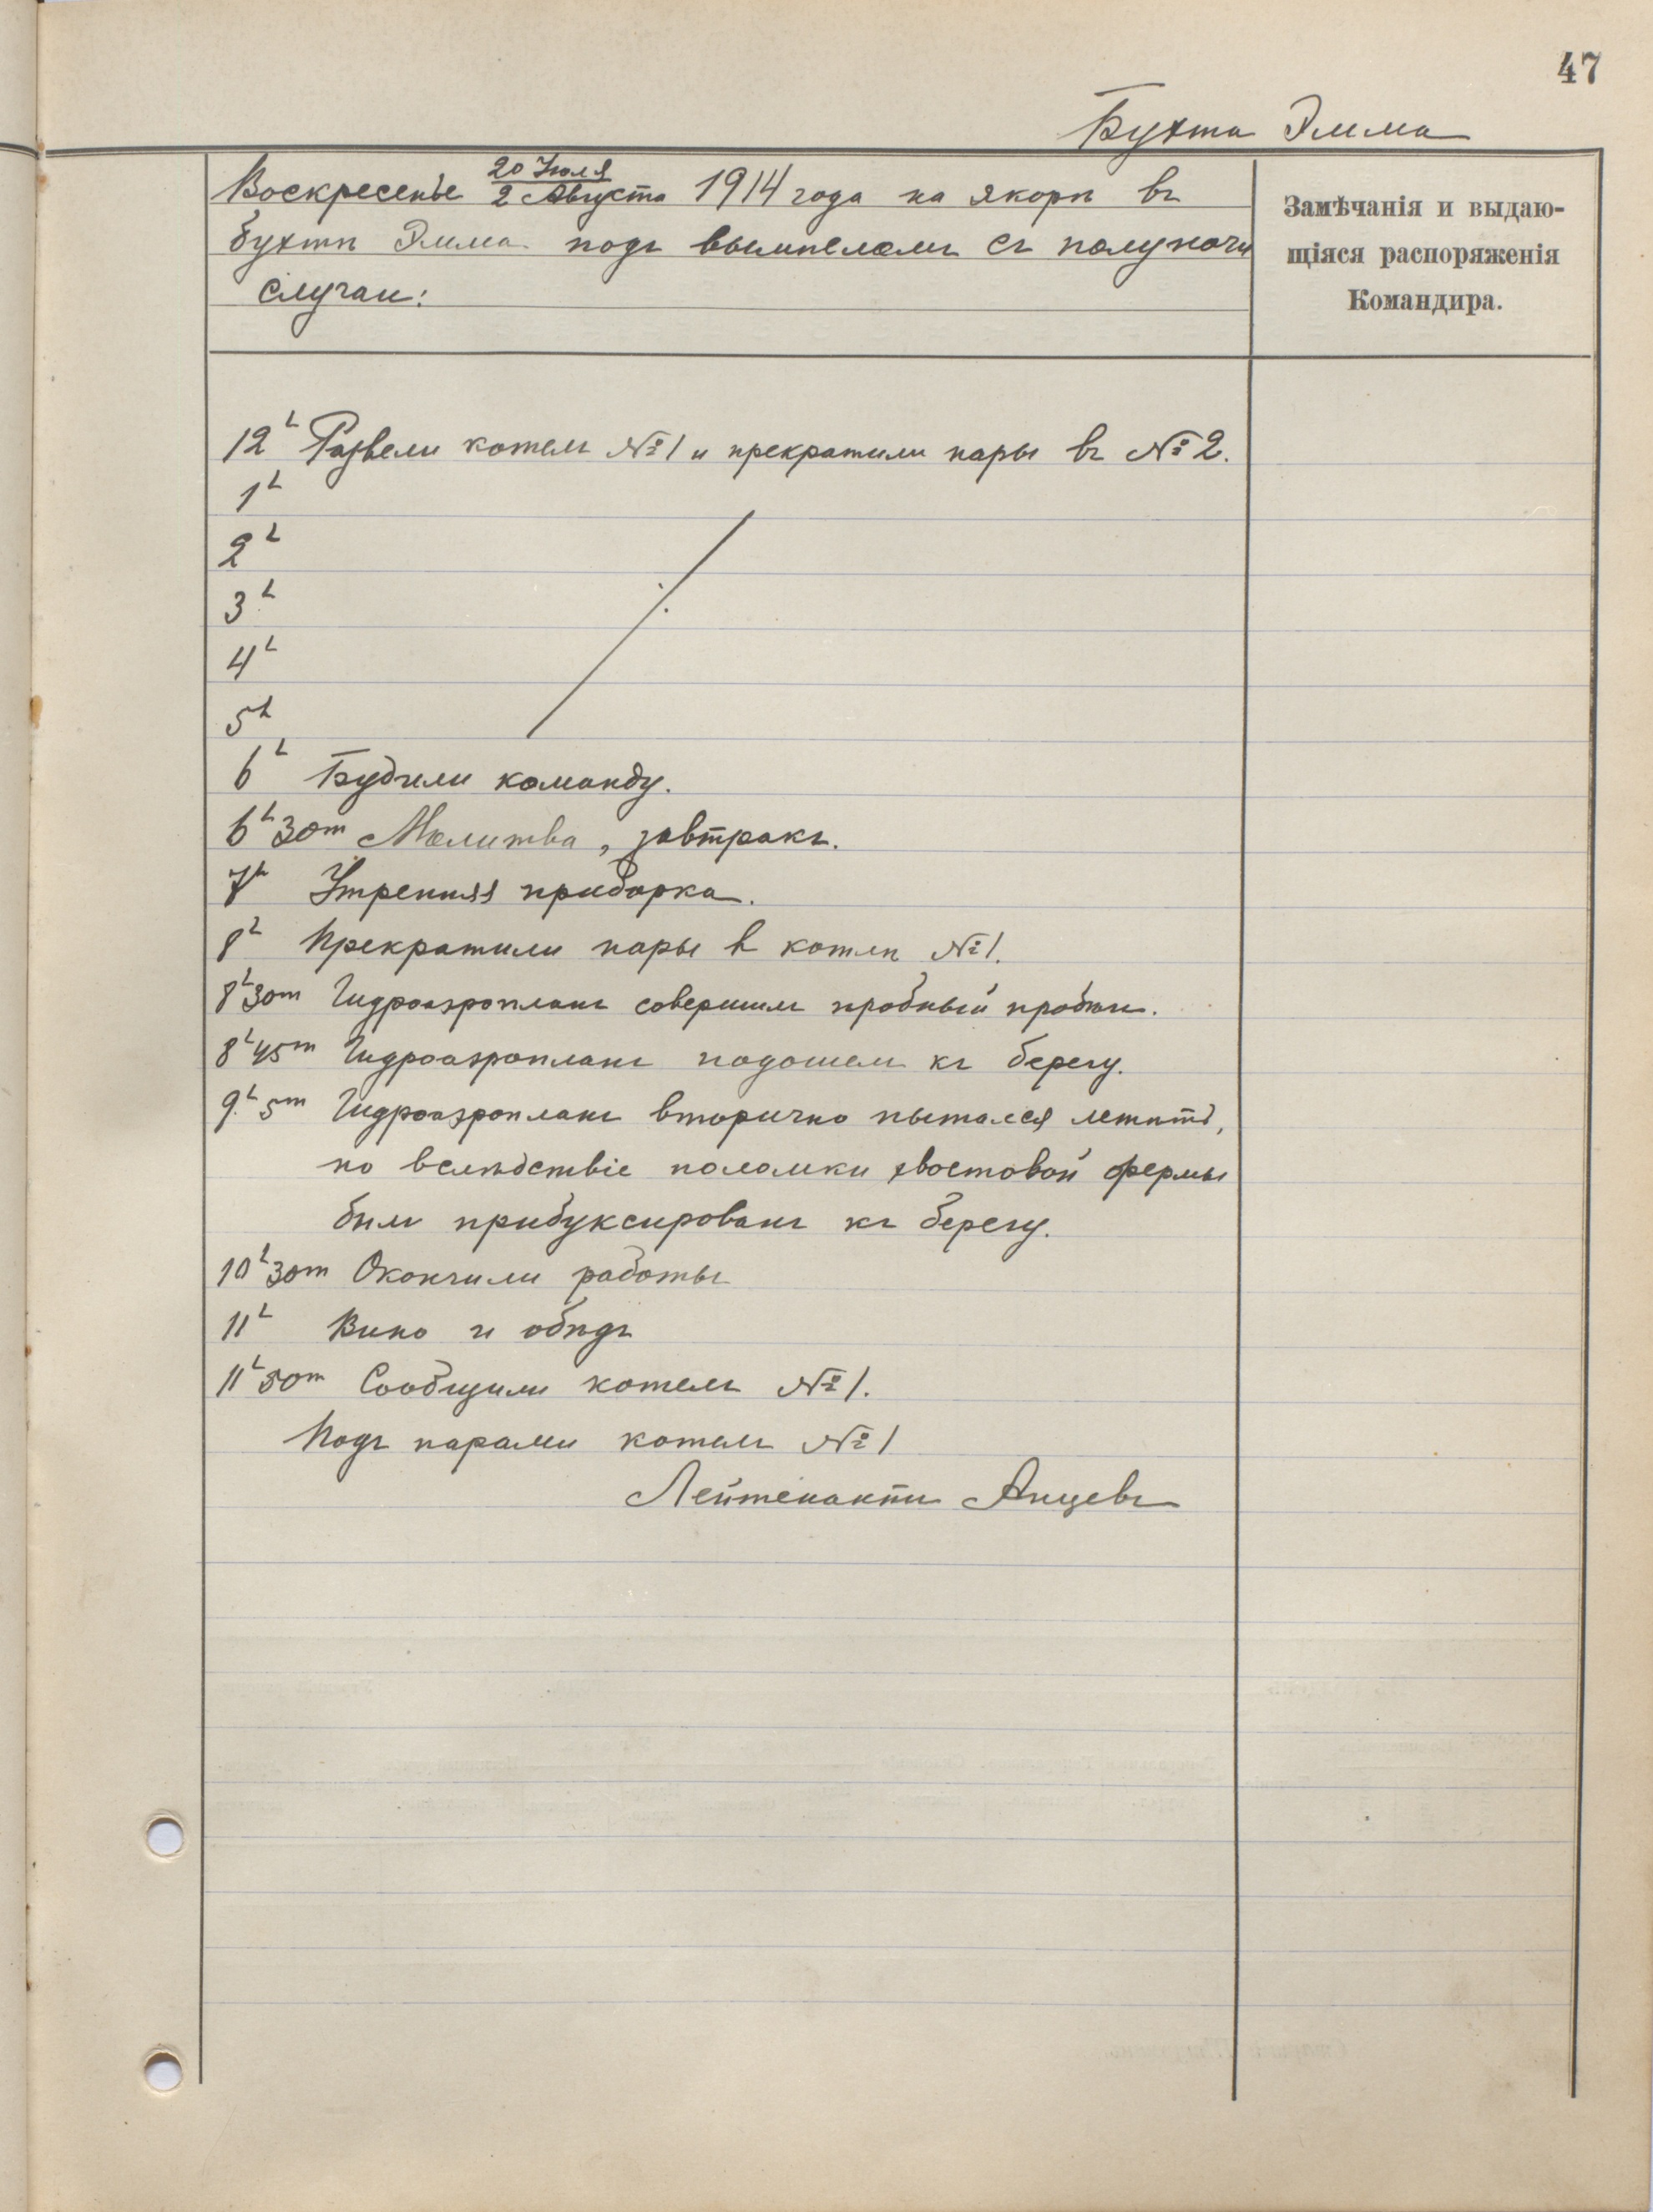 47
Бухта Эмма
Воскресенье 20 Іюля / 2 Августа 1914 года на якорѣ въ
бухтѣ Эмма подъ вымпеломъ съ полуночи
случаи:
Замѣчанія и выдаю-
щіяся распоряженія
Командира.
12h Развели котелъ №1 и прекратили пары въ №2.
1h
2h
3h
4h
5h
6h Будили команду.
6h 30m Молитва, завтракъ.
7h Утренняя приборка.
8h Прекратили пары в котлѣ №1.
8h 30m Гидроаэропланъ совершилъ пробный пробѣгъ.
8h 45m Гидроаэропланъ подошелъ къ берегу.
9h 5m Гидроаэропланъ вторично пытался летѣть,
но вслѣдствіе поломки хвостовой фермы
былъ прибуксированъ къ берегу.
10h 30m Окончили работы
11h Вино и обѣдъ
11h 50m Сообщили котелъ №1.
Подъ парами котелъ №1
Лейтенантъ Анцевъ